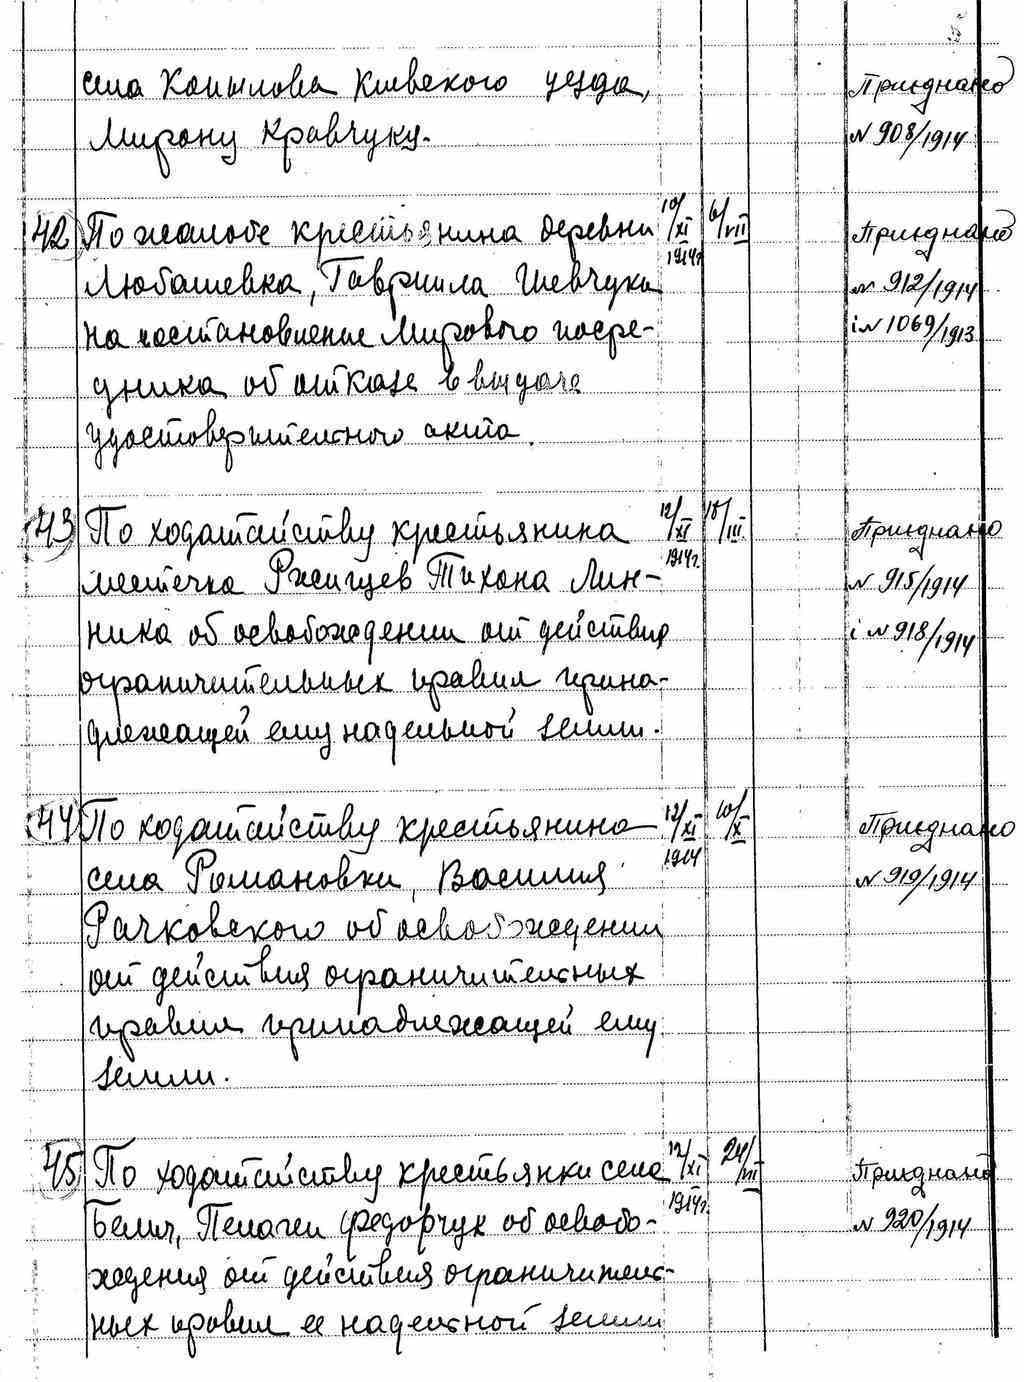 села Копылова Киевского уезда, Приєднано
Мирону Кравчуку. № 908/1914
42 По жалобе крестьянина деревни 10/XI 1914г. 6/VII Приєднано
Любашевка, Гавриила Шевчука № 912/1914
на постановление Мирового посре- і № 1069/1913
дника об отказе в выдаче
удостоверительного акта.
43 По ходатайству крестьянина 12/XI 1914г. 18/III Приєднано
местечка Ржищев Тихона Лин- № 915/1914
ника об освобождении от действия і № 918/1914
ограничительных правил прина-
длежащей ему надельной земли.
44 По ходатайству крестьянина 12/XI 1914 10/X Приєднано
села Романовки, Василия № 919/1914
Рачковского об освобождении
от действия ограничительных
правил принадлежащей ему
земли.
45 По ходатайству крестьянки села 12/XI 1914г. 24/VII Приєднано
Белич, Пелагеи Федорчук об освобо- № 920/1914
ждения от действия ограничитель-
ных правил ее надельной земли